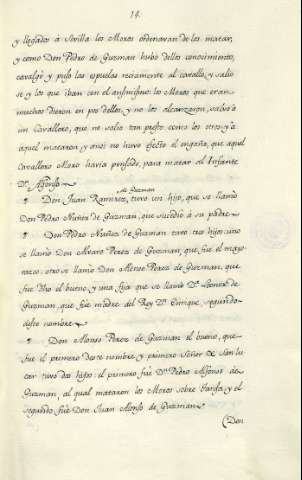 14.
y llegados á Sevilla los Moros ordenaran de los matar,
y como Don Pedro de Guzman hubo dellos conocimiento,
cavalgó y puso las espuelas reciamente al cavallo, y salió
se y los que iban con el ansimismo: los Moros que eran
muchos dieron en pos dellos, y no los alcanzaron, salvo á
un Cavallero, que no salió tan presto como los otros, y á
aquel mataron y ansi no havo efecto el engaño, que aquel
Cavallero Moro havia pensado, para matar al Infante
Dn. Alfonso
de Guzman
Don Juan Ramirez, tuvo un hijo, que se llamó
Don Pedro Nuñez de Guzman, que sucedió á su padre
Don Pedro Nuñez de Guzman tuvo tres hijos: uno
se llamó Don Alvaro Perez de Guzman, que fue el mayo
razgo: otro se llamó Don Alonso Perez de Guzman, que
fue dho el bueno, y una hija que se llamó Da. Leonor de
Guzman, que fue madre del Rey Dn. Enrique segundo
deste nombre
Don Alonso Perez de Guzman el bueno, que
fue el primero deste nombre, y primero Señor de San Lu
car tuvo dos hijos: el primero fue Dn. Pedro Alfonso de
Guzman, al qual mataron los Moros sobre Tarifa; y el
segundo fue Don Juan Alonso de Guzman
(Don